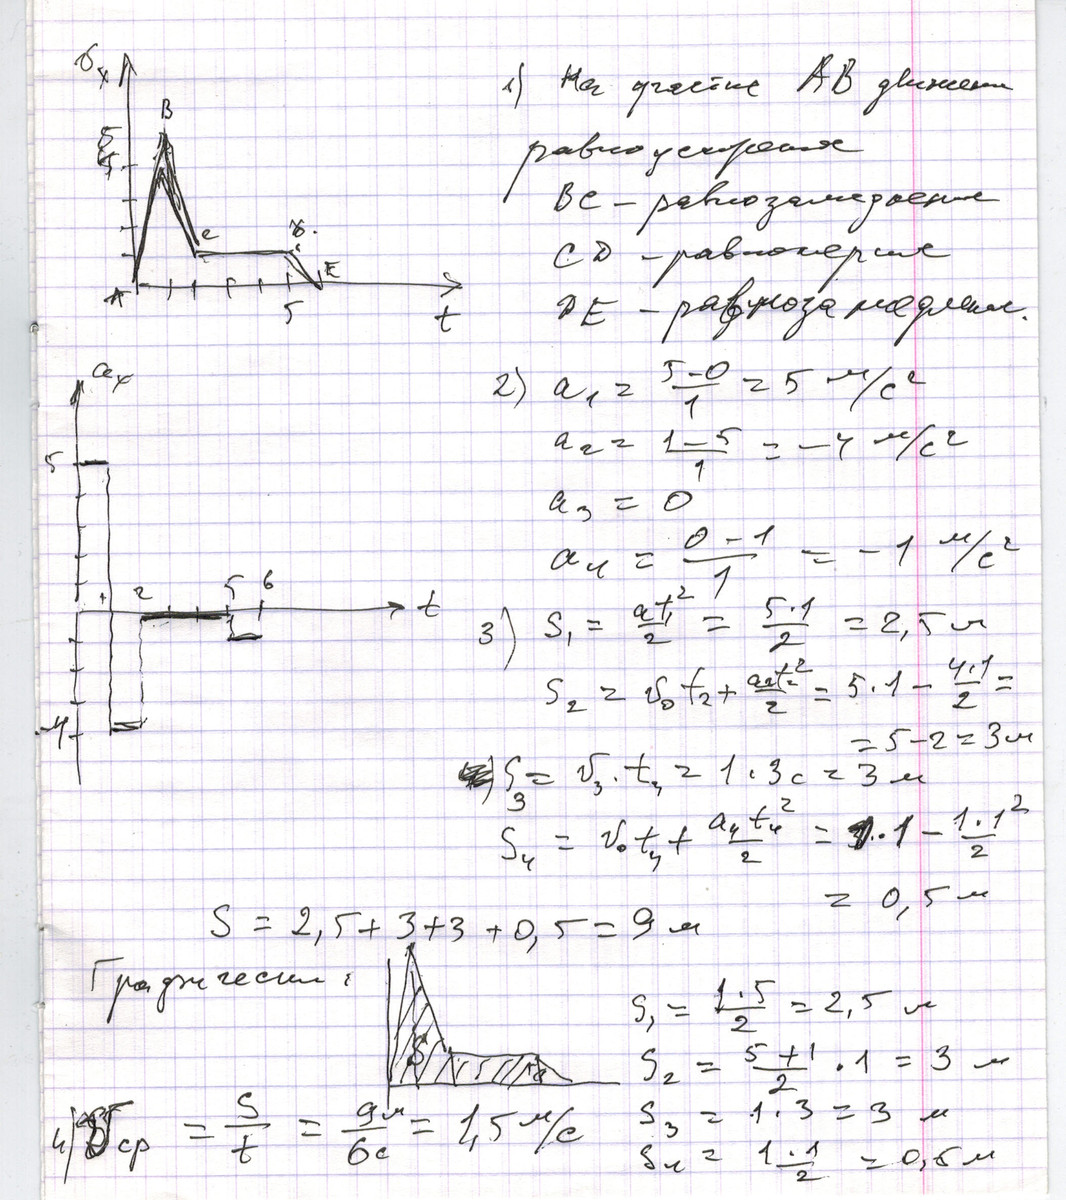 1) На участке AB движение
равноускорен
BC – равнозамедленн
CD – равномерн
DE – равнозамедлен.
υx
B
5
4
C
D.
A
E
5
t
2) a₁ = 5-0/1 = 5 м/с²
a₂ = 1-5/1 = -4 м/с²
a₃ = 0
a₄ = 0-1/1 = -1 м/с²
ax
5
1 2 5 6
t
-4
3) S₁ = at₁²/2 = 5·1/2 = 2,5 м
S₂ = υ₀t₂ + a₂t₂²/2 = 5·1 - 4·1/2 =
= 5-2 = 3 м
S₃ = υ₃·t₃ = 1·3с = 3 м
S₄ = υ₀t₄ + a₄t₄²/2 = 1·1 - 1·1²/2
= 0,5 м
S = 2,5+3+3+0,5 = 9 м
Графически:
S
S₁ = 1·5/2 = 2,5 м
S₂ = 5+1/2 · 1 = 3 м
S₃ = 1·3 = 3 м
S₄ = 1·1/2 = 0,5 м
4) υср = S/t = 9м/6с = 1,5 м/с